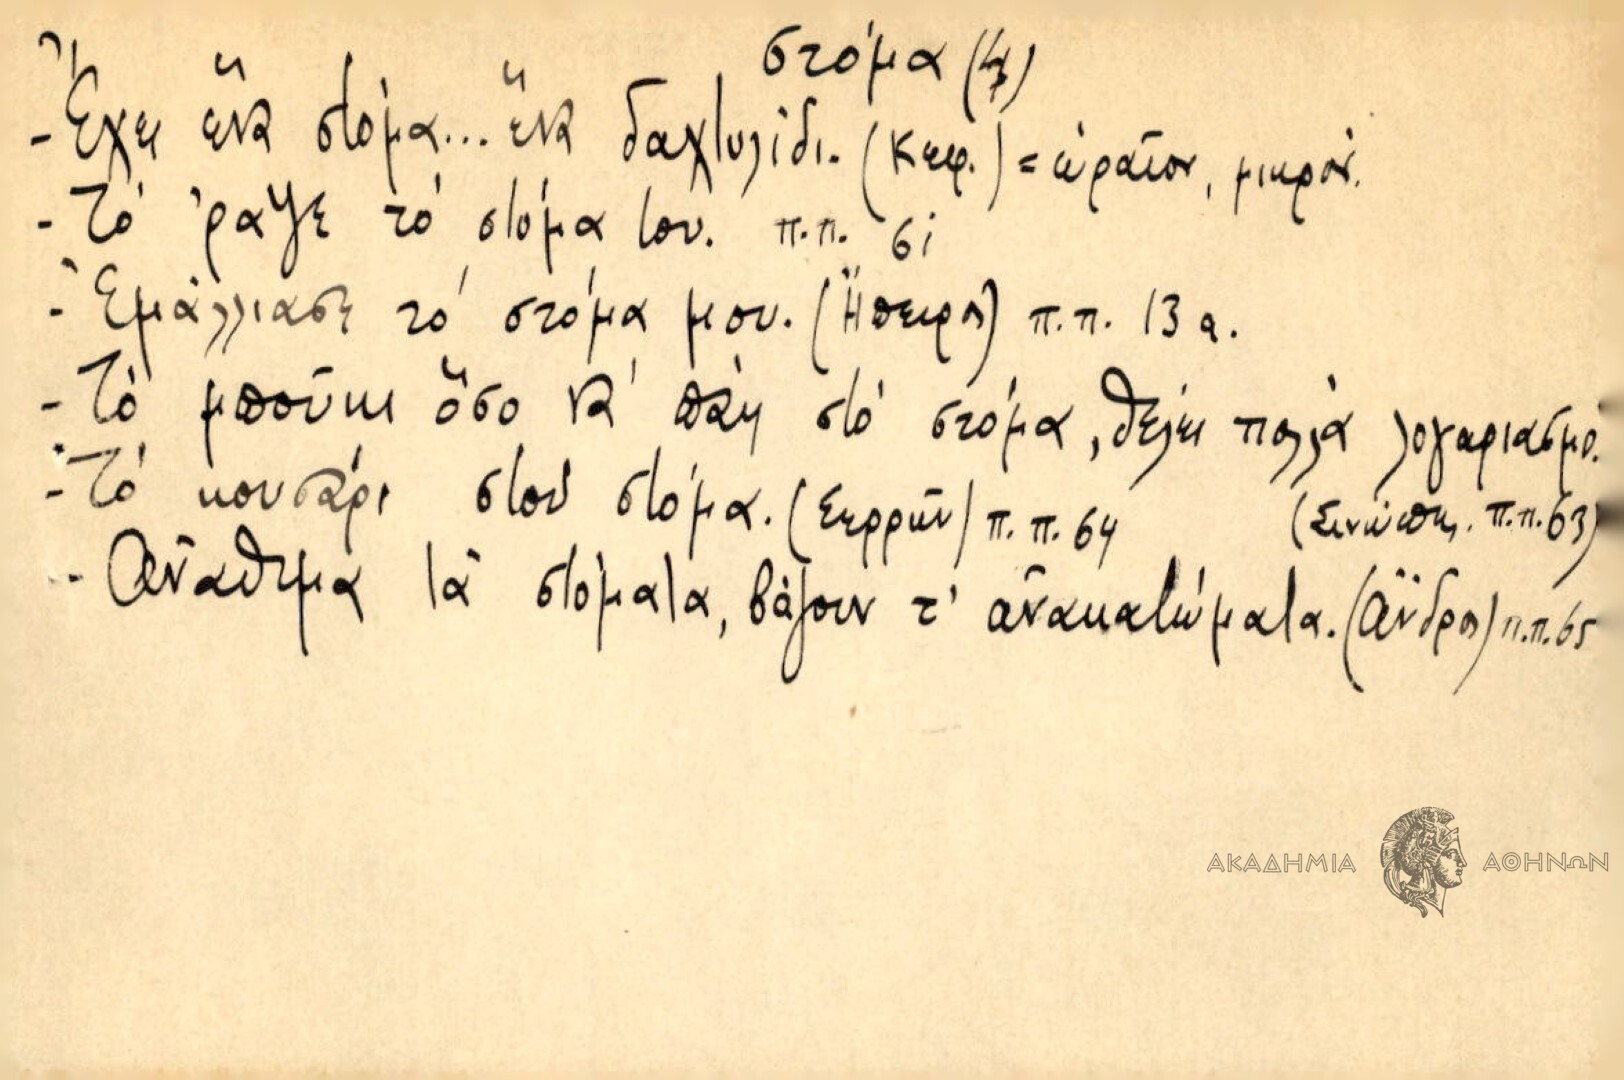 στόμα (4)
- Ἔχει ἕνα στόμα... ἕνα δαχτυλίδι. (Κεφ.) = ὡραῖον, μικρόν.
- Τό ῥαψε τό στόμα του. π.π. 6i
- Ἐμάλλιασε τό στόμα μου. (Ἤπειρος) π.π. 13 α.
- Τό μποῦκι ὅσο νά πάῃ στό στόμα, θέλει πολλά λογαριασμό.
(Σινώπης. π.π. 63)
- Τό κουτάρι στού στόμα. (Σερρῶν) π.π. 64
- Ἀνάθεμα τά στόματα, βάζουν τ' ἀνακατώματα. (Ἄνδρος) π.π. 65
ΑΚΑΔΗΜΙΑ ΑΘΗΝΩΝ